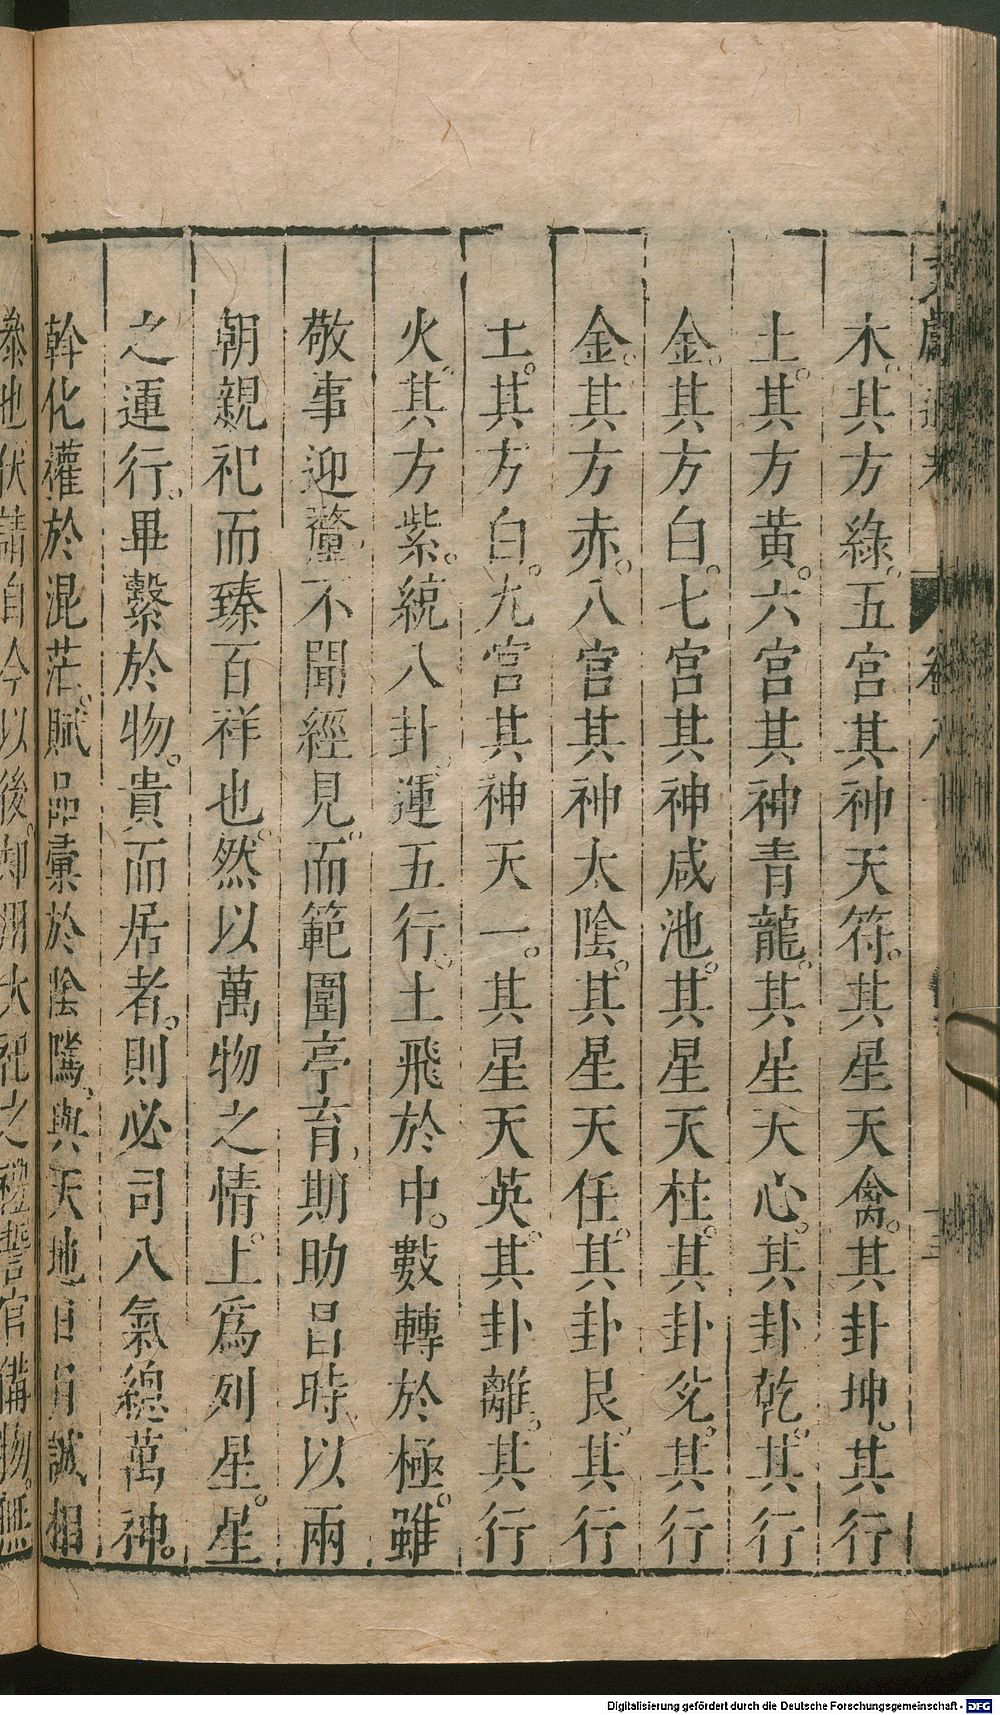 文獻通考 卷八
木。其方綠。五宮其神天符。其星天禽。其卦坤。其行
土。其方黃。六宮其神青龍。其星天心。其卦乾。其行
金。其方白。七宮其神咸池。其星天柱。其卦兌。其行
金。其方赤。八宮其神太陰。其星天任。其卦艮。其行
土。其方白。九宮其神天一。其星天英。其卦離。其行
火。其方紫。統八卦。運五行。土飛於中。數轉於極。雖
敬事迎釐。不聞經見。而範圍亭育。期助昌時。以兩
朝親祀而臻百祥也。然以萬物之情。上爲列星。星
之運行。畢繫於物。貴而居者。則必司八氣總萬神。
幹化權於混茫。賦品彙於陰隲。與天地日月誠相
叅也伏請自今以後。却用大祀之禮誓官備物。無
Digitalisierung gefördert durch die Deutsche Forschungsgemeinschaft - DFG